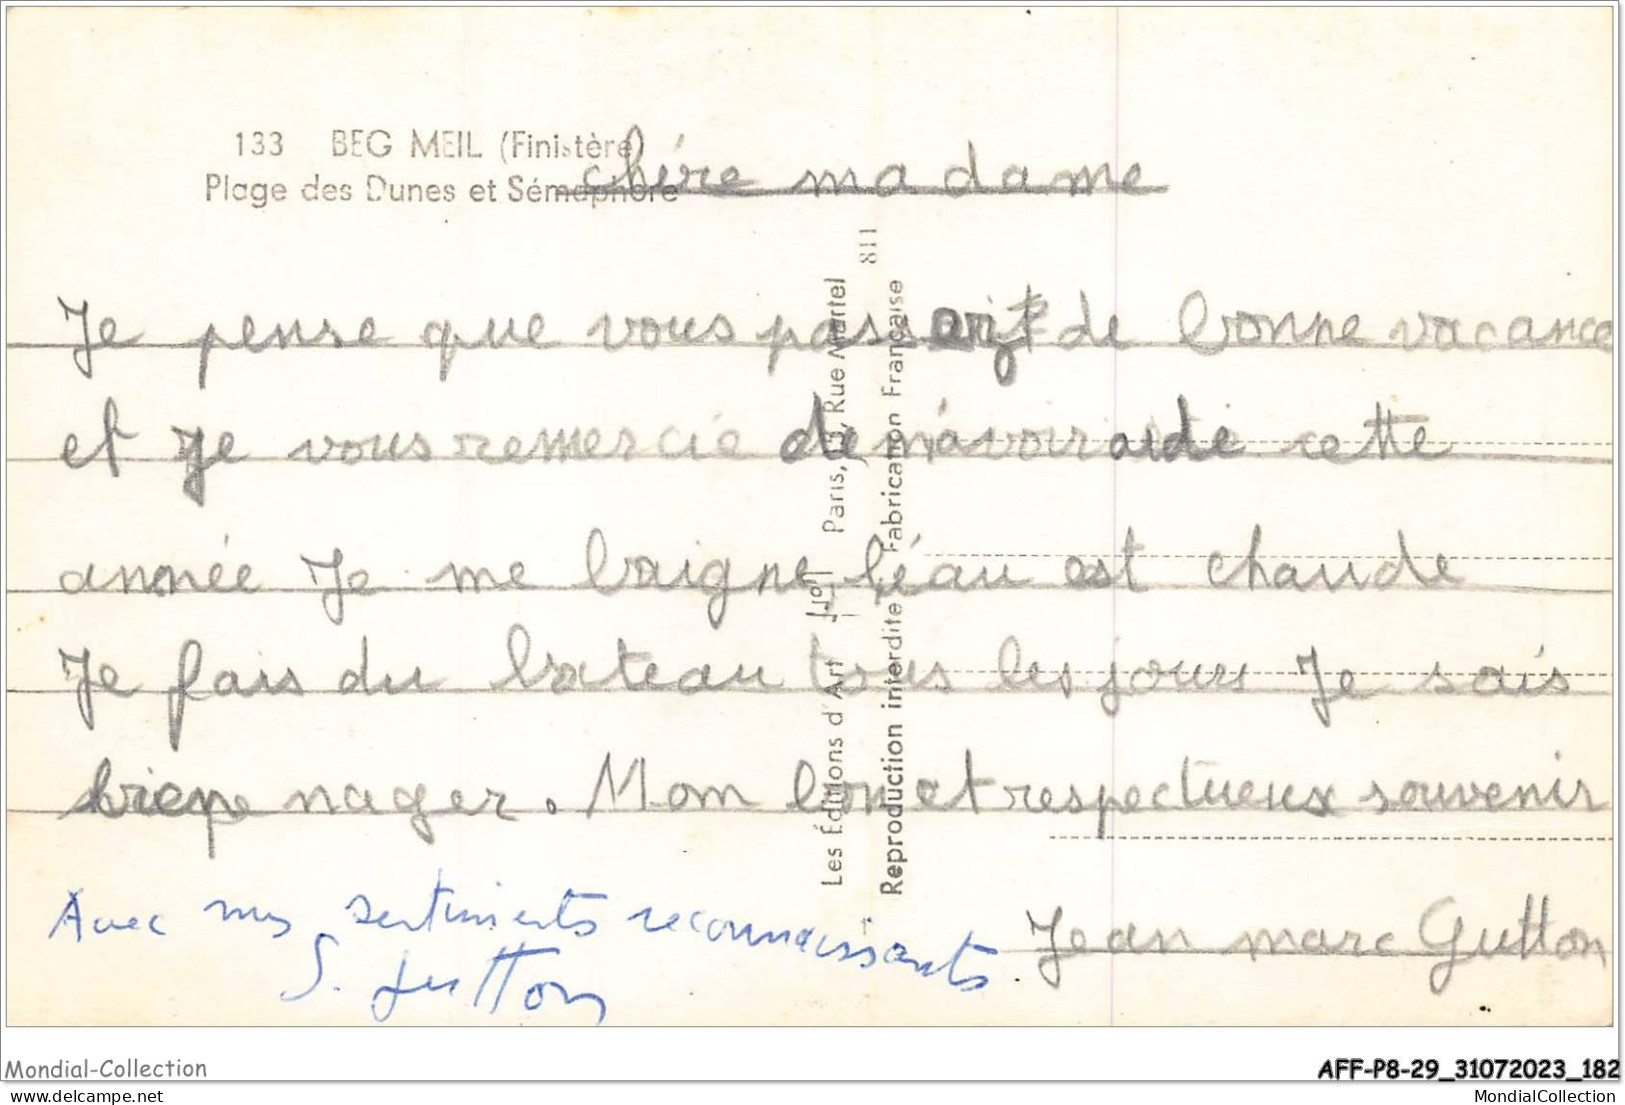 133 BEG MEIL (Finistère)
Plage des Dunes et Sémaphore
chére madame
Je pense que vous de bonne vacance
et je vous remercie de m'avoir aide cette
année Je me baigne l'éau est chaude
Je fais du bateau tous les jours Je sais
bien nager. Mom bon et respectueux souvenir
Jean marc Gutton
Avec mes sentiments reconnaissants.
S. Gutton
Les Éditions d'Art Paris, Rue Martel
811
Reproduction interdite Fabrication Française
Mondial-Collection
AFF-P8-29_31072023_182
www.delcampe.net
MondialCollection